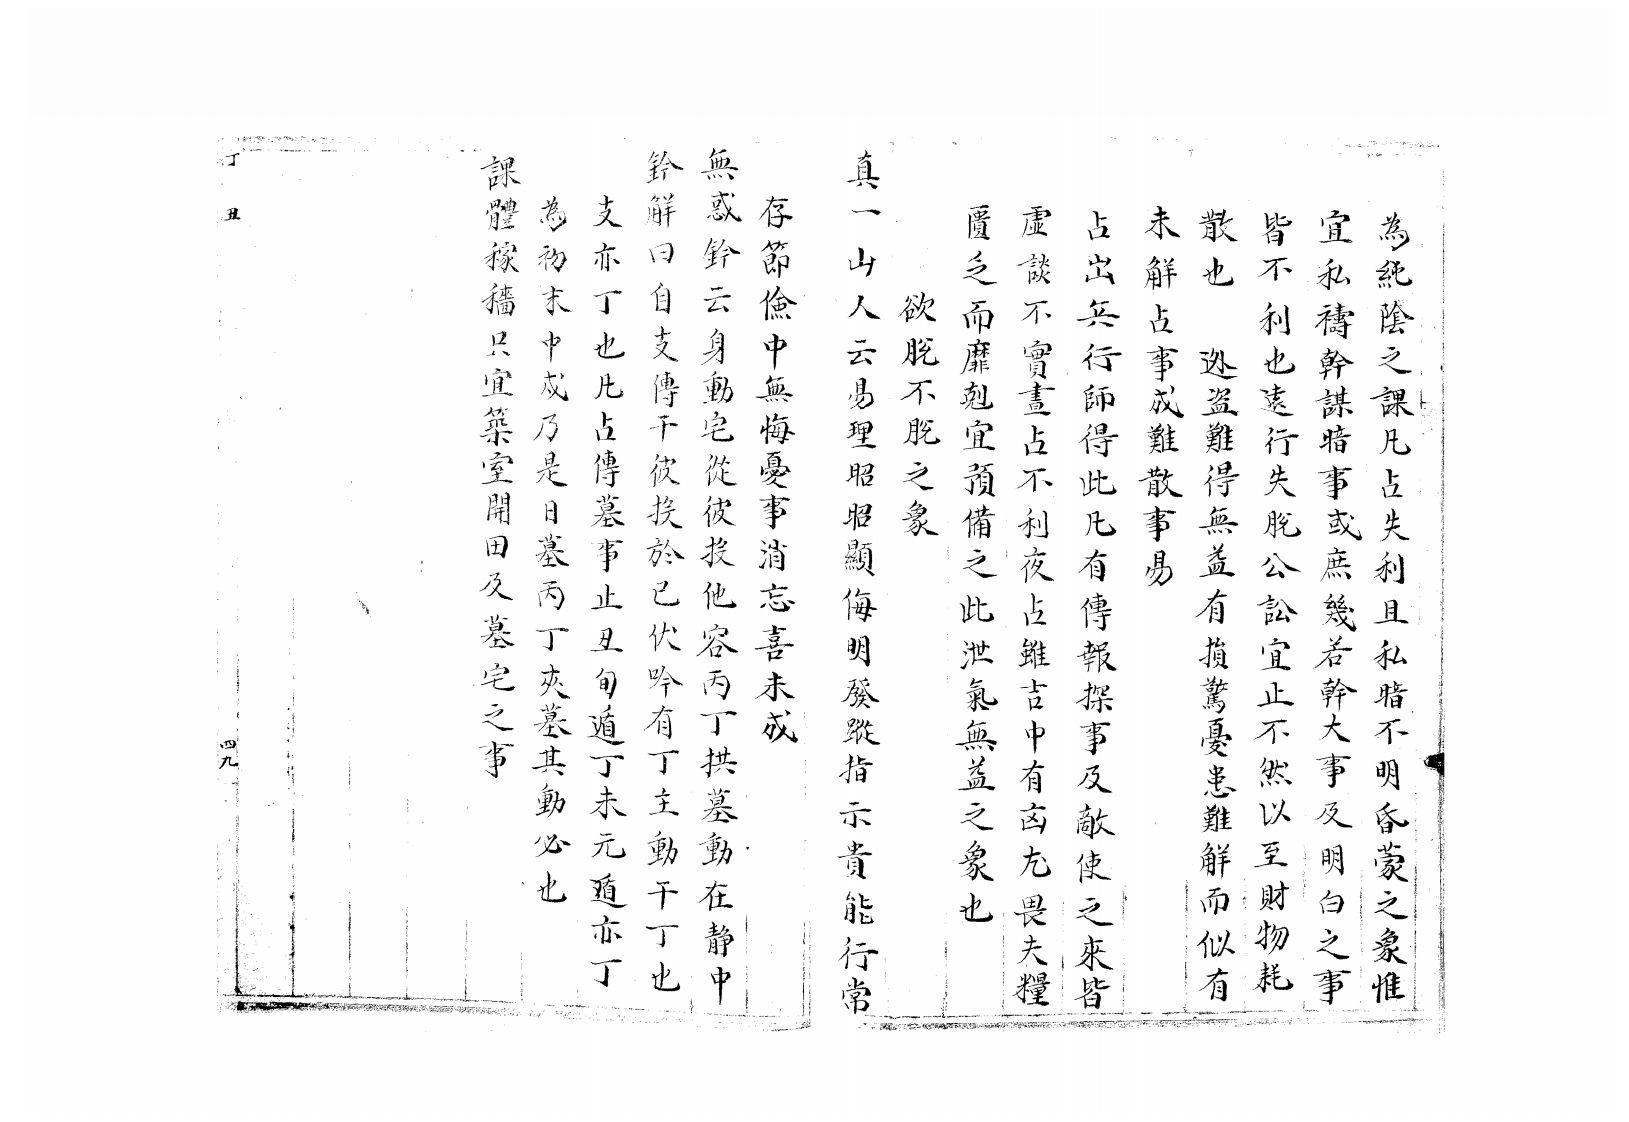 為純陰之課凡占失利且私暗不明昏蒙之象惟
宜私禱幹謀暗事或庶幾若幹大事及明白之事
皆不利也遠行失脫公訟宜止不然以至財物耗
散也　逃盜難得無益有損驚憂患難解而似有
未解占事成難散事易
占出兵行師得此凡有傳報探事及敵使之來皆
虛談不實晝占不利夜占雖吉中有凶尤畏夫糧
匱乏而靡剋宜預備之此泄氣無益之象也
欲脫不脫之象
真一山人云易理昭昭顯侮明發蹤指示貴能行常
存節儉中無悔憂事消忘喜未成
無惑鈐云身動宅從彼投他容丙丁拱墓動在靜中
鈐解曰自支傳干彼投於己伏吟有丁主動干丁也
支亦丁也凡占傳墓事止丑旬遁丁未元遁亦丁
為初末中成乃是日墓丙丁夾墓其動必也
課體稼穡只宜築室開田及墓宅之事
丁丑
四九